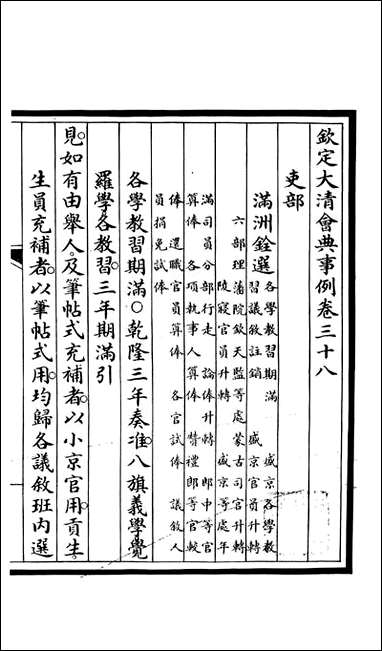 欽定大清會典事例卷三十八
吏部
滿洲銓選
各學教習期滿 盛京各學教
習議敘註銷 盛京官員升轉
六部理藩院欽天監等處蒙古司官升轉
陵寢官員升轉 盛京等處年
滿司員分部行走 論俸升轉 郎中等官
算俸 各項執事人算俸 贊禮郎等官較
俸 還職官員算俸 各官試俸 議敘人
員捐免試俸
各學教習期滿○乾隆三年奏准八旗義學覺
羅學各教習三年期滿引
見如有由舉人及筆帖式充補者以小京官用貢生
生員充補者以筆帖式用均歸各議敘班內選